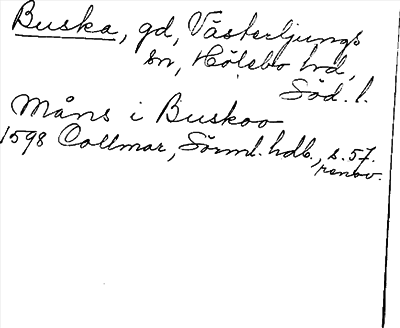 Buska, gd, Västerljungs
sn, Hölebo hrd,
Söd. l.
Måns i Buskoo
1598 Collmar, Sörml. hdb., s. 57.
renov.